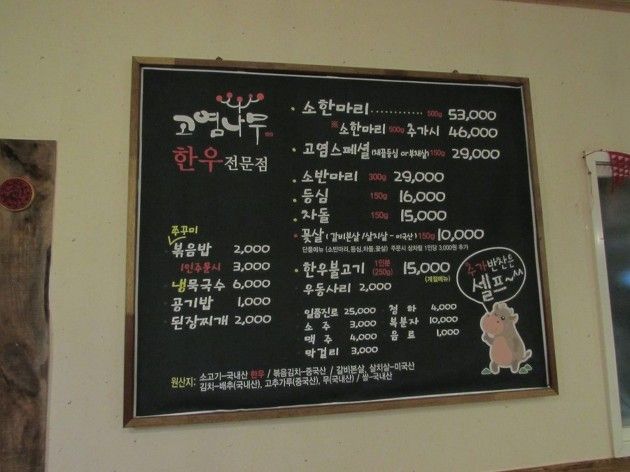 고염나무
한우 전문점
쭈꾸미
볶음밥 2,000
1인주문시 3,000
냉묵국수 6,000
공기밥 1,000
된장찌개 2,000
소한마리 500g 53,000
※소한마리 500g 추가시 46,000
고염스페셜 150g 29,000
소반마리 300g 29,000
등심 150g 16,000
차돌 150g 15,000
꽃살 (갈비본살/살치살-미국산) 150g 10,000
단품메뉴 (소반마리,등심,차돌,꽃살) 주문시 상차림 1인당 3,000원 추가
한우불고기 1인분 (250g) 15,000
(계절메뉴)
우동사리 2,000
일품진로 25,000 청하 4,000
소주 3,000 복분자 10,000
맥주 4,000 음료 1,000
막걸리 3,000
추가반찬은
셀프~
원산지: 소고기-국내산 한우 / 볶음김치-중국산 / 갈비본살, 살치살-미국산
김치-배추(국내산), 고추가루(중국산), 무(국내산) / 쌀-국내산